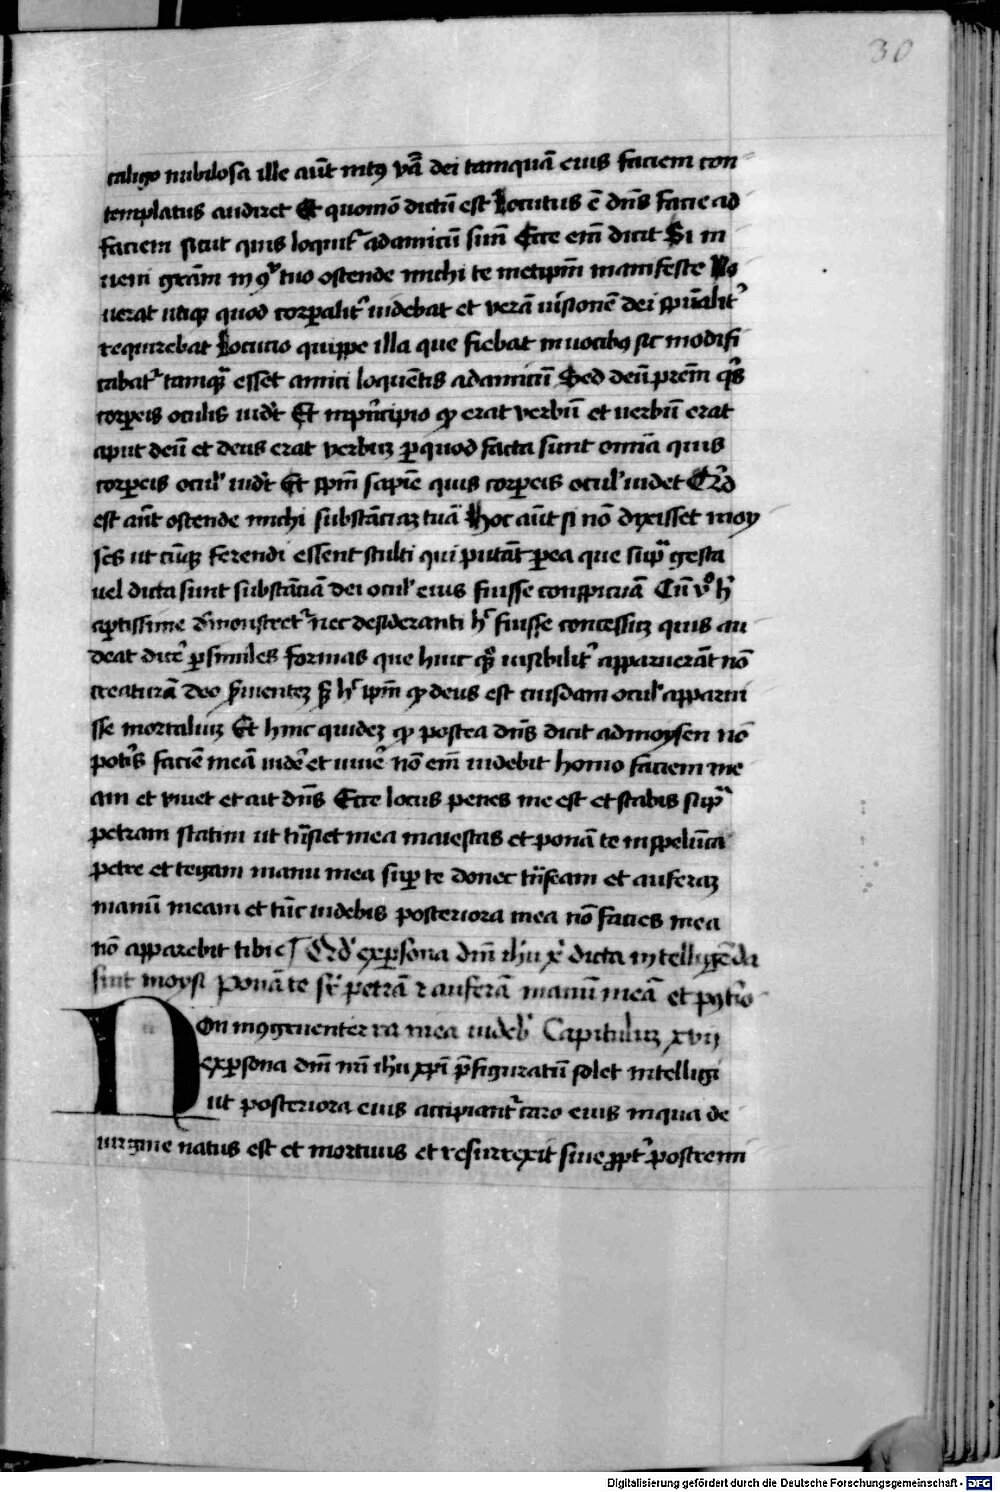 30
caligo nubilosa ille aūt intꝯ v̄ba dei tamquā eius faciem con
templatus audiret Et quomō dictū est Locutus ē dn̄s facie ad
faciem sicut quis loquit᷑ ad amicū suū Ecce em̄ dicit Si in
ueni gr̄am in ꝯsp̄tu tuo ostende michi te metipm̄ manifeste No
uerat utiqꝫ quod corꝑalit᷑ uidebat et verā uisionē dei spūalit᷑
requirebat Locucio quippe illa que fiebat in uocibꝯ sic modifi
cabat᷑ tamqᷓ esset amici loquētis ad amicū Sed deū prēm qͥs
corꝑeis oculis uidꝫ Et in pͥncipio qͦ erat verbū et uerbū erat
aput deū et deus erat verbuꝫ ꝑ quod facta sunt omīa quis
corꝑeis ocul᷑ uidꝫ Et spm̄ sapīe quis corꝑeis ocul᷑ uidet Qͥd
est aūt ostende michi substāciaꝫ tuā Hoc aūt si nō dixisset moy
ses ut cūqꝫ ferendi essent stulti qui putāt ꝑ ea que supᷓ gesta
uel dicta sunt substāciā dei ocul᷑ eius fuisse conspicuā Cū vͦ hͦ
aꝑtissime demonstret᷑ nec desideranti hͦ fuisse concessuꝫ quis au
deat dic̄e ꝑ similes formas que huic qͦqꝫ uisibilit᷑ apparuerāt nō
creaturā deo s̄uienteꝫ sꝫ hͦ ipm̄ qͦ deus est cuiusdam ocul᷑ apparui
sse mortaliuꝫ Et hinc quideꝫ qͦ postea dn̄s dicit ad moysen nō
potͥs faciē meā uidēe et uiuēe nō em̄ uidebit homo faciem me
am et viuet et ait dn̄s Ecce locus penes me est et stabis supᷓ
petram statim ut trāsiet mea maiestas et ponā te in speluca
petre et tegam manu mea suꝑ te donec trāseam et auferaꝫ
manū meam et tūc uidebis posteriora mea nō facies mea
nō apparebit tibi ¶ Qd᷑ ex ꝑsona dn̄i ihū xͥ dicta intelligēda
sint moysi ponā te sr̄ petrā ⁊ auferā manū meā et posteͥo
Non incōgruenter ra mea uideb᷑ Capituluꝫ xvij
ex ꝑsona dn̄i nr̄i ihū xp̄i p̄figuratū solet intelligi
ut posteriora eius accipiant᷑ caro eius in qua de
uirgine natus est et mortuus et resurrexit siue ꝓpt᷑ postremi
Digitalisierung gefördert durch die Deutsche Forschungsgemeinschaft - DFG